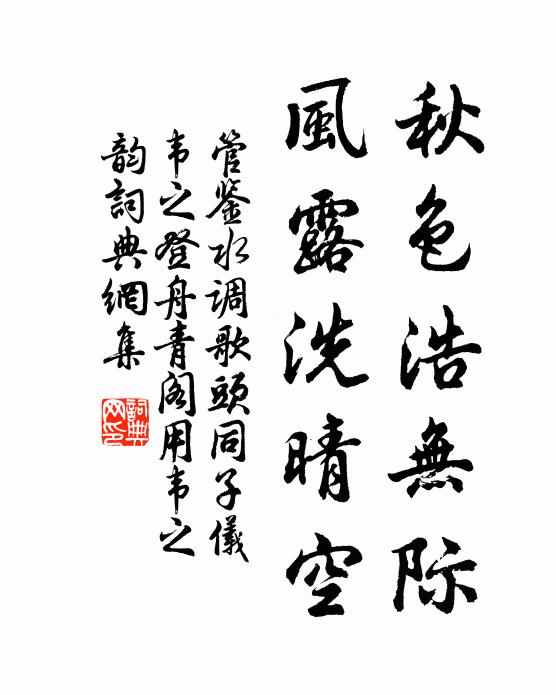 秋色浩無际
風露洗晴空
管鉴水调歌頭同子儀
韦之登舟青阁用韦之
韵詞典網集
詞典
网印